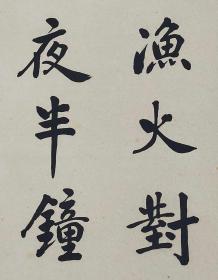 漁火對
夜半鐘